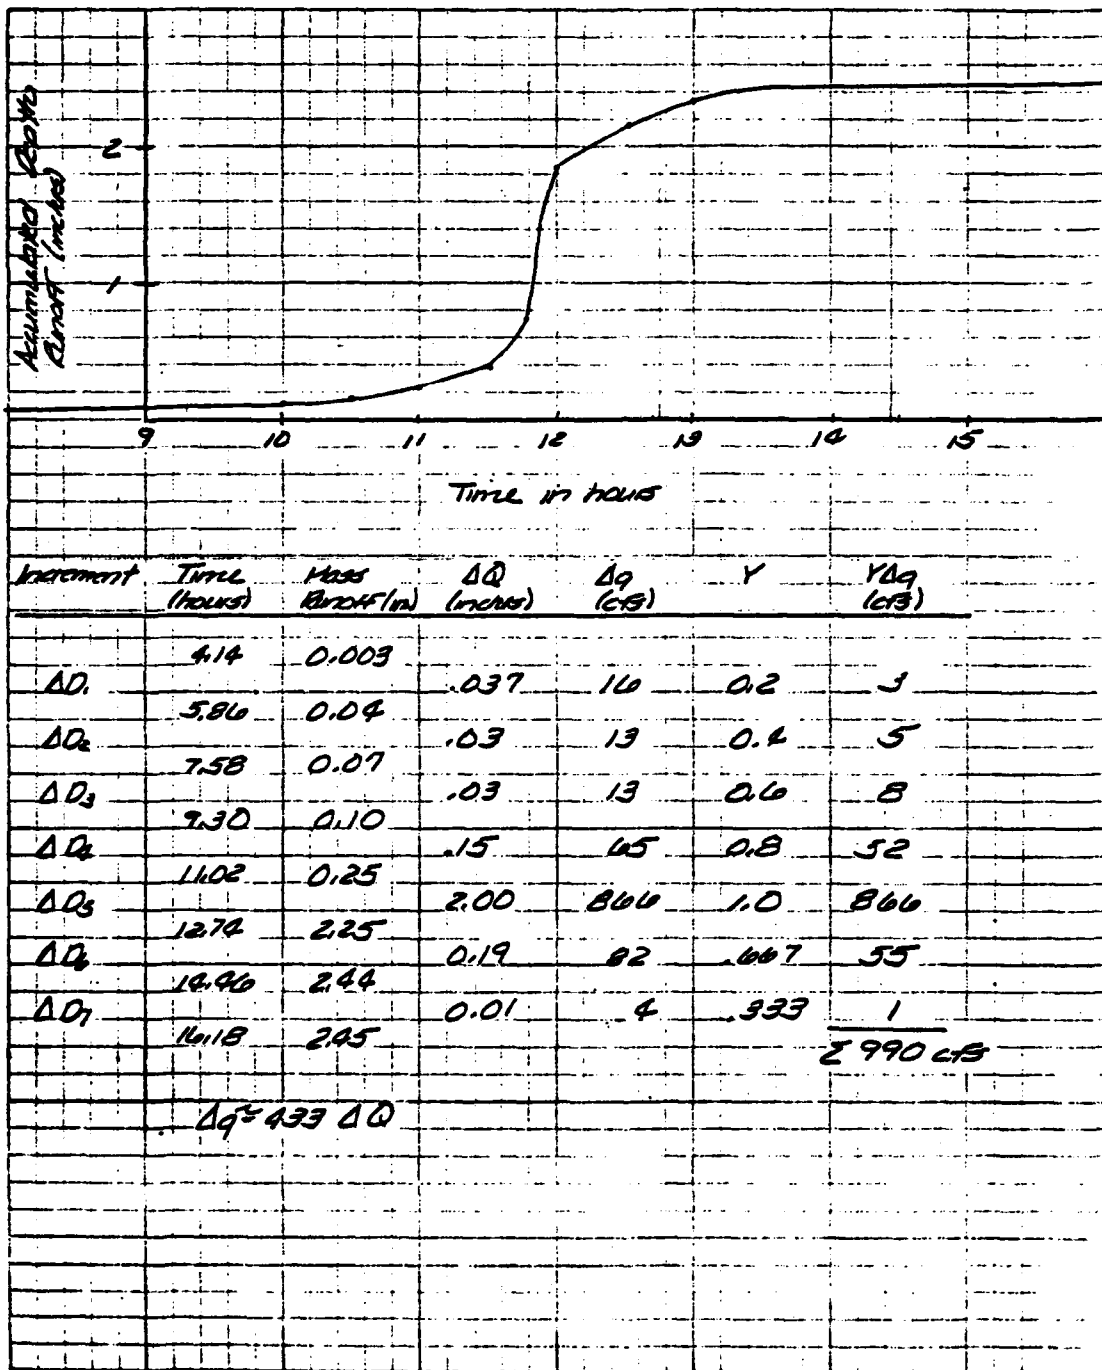 Accumulated Depth
Runoff (inches)
2
1
9 10 11 12 13 14 15
Time in hours
Increment Time Mass ΔQ Δq Y YΔq
(hours) Runoff (in) (inches) (cfs) (cfs)
4.14 0.003
ΔD1 .037 16 0.2 3
5.86 0.04
ΔD2 .03 13 0.4 5
7.58 0.07
ΔD3 .03 13 0.6 8
9.30 0.10
ΔD4 .15 65 0.8 52
11.02 0.25
ΔD5 2.00 866 1.0 866
12.74 2.25
ΔD6 0.19 82 .667 55
14.46 2.44
ΔD7 0.01 4 .333 1
16.18 2.45
Σ 990 cfs
Δq ≈ 433 ΔQ